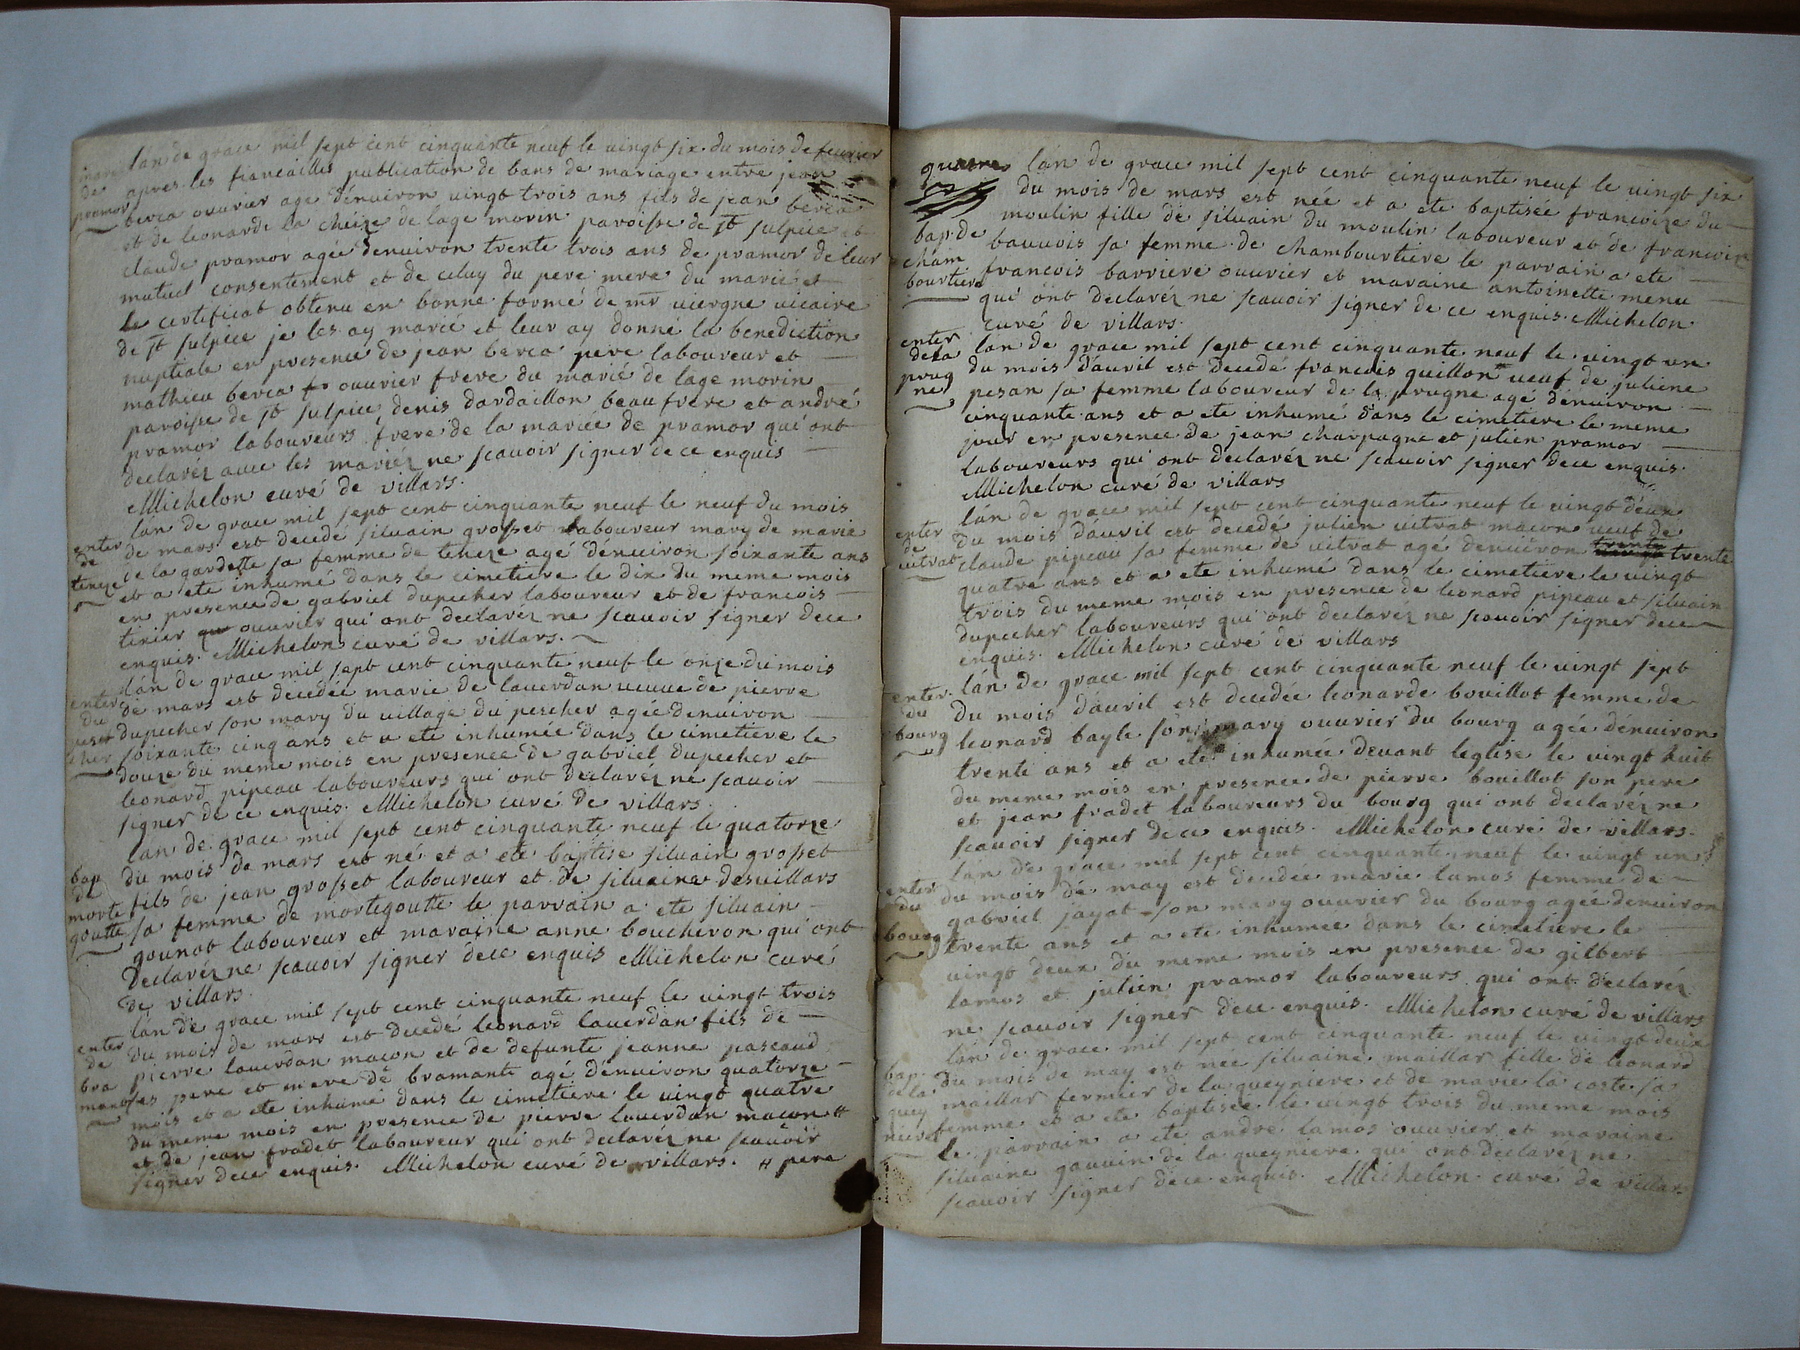 mari
de
pramor
lán de grace mil sept cent cinquante neuf le uingt six du mois de feurier
apres les fiancailles publication de bans de mariage entre jean
berca ouurier age dénuiron uingt trois ans fils de jean berca
et de leonarde la cheize de lage morin paroisse de st sulpice et
claude pramor agée denuiron trente trois ans de pramor de leur
mutuel consentement et de celuy du pere mere du marié et
le certificat obtenu en bonne formé de mr uiergne uicaire
de st sulpice je les ay marié et leur ay donné la benediction
nuptiale en presence de jean berca pere laboureur et
mathieu berca ouurier frere du marié de lage morin
paroisse de st sulpice denis dardaillon beaufrere et andré
pramor laboureurs frere de la mariée de pramor qui ont
declaréz auec les mariéz ne scauoir signer de ce enquis
Michelon curé de villars.
enter
de
teneze
lán de grace mil sept cent cinquante neuf le neuf du mois
de mars est decedé siluain grosset laboureur mary de marie
de la gardette sa femme de teheze agé dénuiron soixante ans
et a ete inhumé dans le cimetiere le dix du meme mois
en presence de gabriel dupecher laboureur et de francois
tixier ouurier qui ont declaréz ne scauoir signer de ce
enquis. Michelon curé de villars.
enter
du
pesc
cher
lán de grace mil sept cent cinquante neuf le onze du mois
de mars est decedée marie de lauerdan ueuue de pierre
dupecher son mary du village du pescher agée denuiron
soixante cinq ans et a ete inhumée dans le cimetiere le
douze du meme mois en presence de gabriel dupecher et
leonard pipeau laboureurs qui ont declarez ne scauoir
signer de ce enquis. Michelon curé de villars.
bap
de
morte
goutte
lan de grace mil sept cent cinquante neuf le quatorze
du mois de mars est né et a ete baptise siluain grosset
fils de jean grosset laboureur et de siluaine desuillars
sa femme de mortegoutte le parrain a ete siluain
gounot laboureur et maraine anne boucheron qui ont
declaréz ne scauoir signer de ce enquis Michelon curé
de villars.
enter
de
bra
mante
lán de grace mil sept cent cinquante neuf le uingt trois
du mois de mars est decedé leonard lauerdan fils de
pierre lauerdan macon et de defunte jeanne pascaud
ses pere et mere de bramante agé dénuiron quatorze
mois et a ete inhumé dans le cimetiere le uingt quatre
du meme mois en presence de pierre lauerdan macon #
et de jean fradet laboureur qui ont declaréz ne scauoir
signer de ce enquis. Michelon curé de villars. # pere
quatre
bap de
cham
bourtiere
lán de grace mil sept cent cinquante neuf le uingt six
du mois de mars est née et a ete baptisée francoize du
moulin fille de siluain du moulin laboureur et de francoize
bauuois sa femme de chambourtiere le parrain a ete
francois barriere ouurier et maraine antoinette menu
qui ónt declaréz ne scauoir signer de ce enquis. Michelon
curé de villars.
enter
de la
prug
ne
lan de grace mil sept cent cinquante neuf le uingt un
du mois dáuril est decedé francois guillon ueuf de juliene
pesan sa femme laboureur de la prugne agé denuiron
cinquante ans et a ete inhumé dans le cimetiere le meme
jour en presence de jean charpagne et julien pramor
laboureurs qui ont declaréz ne scauoir signer de ce enquis.
Michelon curé de villars
enter
de
uitrat
lán de grace mil sept cent cinquante neuf le uingt deux
du mois dáuril est decedé julien uitrat macon ueuf de
claude pipeau sa femme de uitrat agé denuiron trente
quatre ans et a ete inhumé dans le cimetiere le uingt
trois du meme mois en presence de leonard pipeau et siluain
dupecher laboureurs qui ont declaréz ne scauoir signer de ce
enquis. Michelon curé de villars
enter
du
bourg
lán de grace mil sept cent cinquante neuf le uingt sept
du mois dáuril est decedée leonarde bouillot femme de
leonard bayle son mary ouurier du bourg agée dénuiron
trente ans et a ete inhumee deuant leglise le uingt huit
du meme mois en presence de pierre bouillot son pere
et jean fradet laboureurs du bourg qui ont declaréz ne
scauoir signer de ce enquis. Michelon curé de villars.
enter
du
bourg
lán de grace mil sept cent cinquante neuf le uingt un
du mois de may est decedée marie lamos femme de
gabriel jayat son mary ouurier du bourg agée denuiron
trente ans et a ete inhumee dans le cimetiere le
uingt deux du meme mois en presence de gilbert
lamos et julien pramor laboureurs qui ont declaréz
ne scauoir signer de ce enquis. Michelon curé de villars
bap.
de la
quey
niere
lán de grace mil sept cent cinquante neuf le uingt deux
du mois de may est nee siluaine maillar fille de leonard
maillar fermier de la queyniere et de marie la coste sa
femme et a ete baptisee le uingt trois du meme mois
le parrain a ete andre lamos ouurier et maraine
siluaine gauuin de la queyniere qui ont declarez ne
scauoir signer de ce enquis. Michelon curé de villars